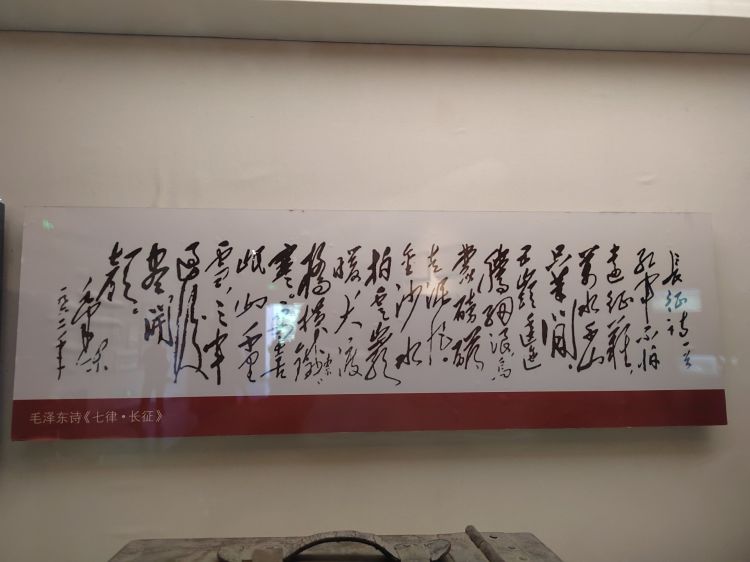 長征詩一首
紅軍不怕
遠征難，
萬水千山
只等閒。
五嶺逶迤
騰細浪，烏
蒙磅礴
走泥丸。
金沙水
拍雲崖
暖，大渡
橋橫鐵索
寒。更喜
岷山千里
雪，三軍
過後
盡開
顏。
毛澤東
一九六二年
毛泽东诗《七律·长征》